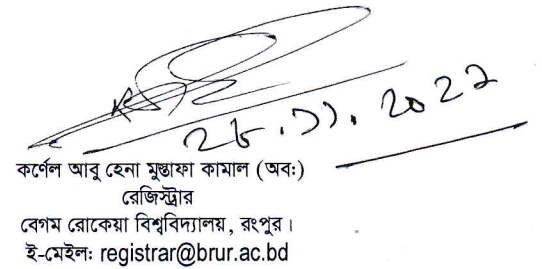 ২৮.১১.২০২২
কর্ণেল আবু হেনা মুস্তাফা কামাল (অব:)
রেজিস্ট্রার
বেগম রোকেয়া বিশ্ববিদ্যালয়, রংপুর।
ই-মেইল: registrar@brur.ac.bd